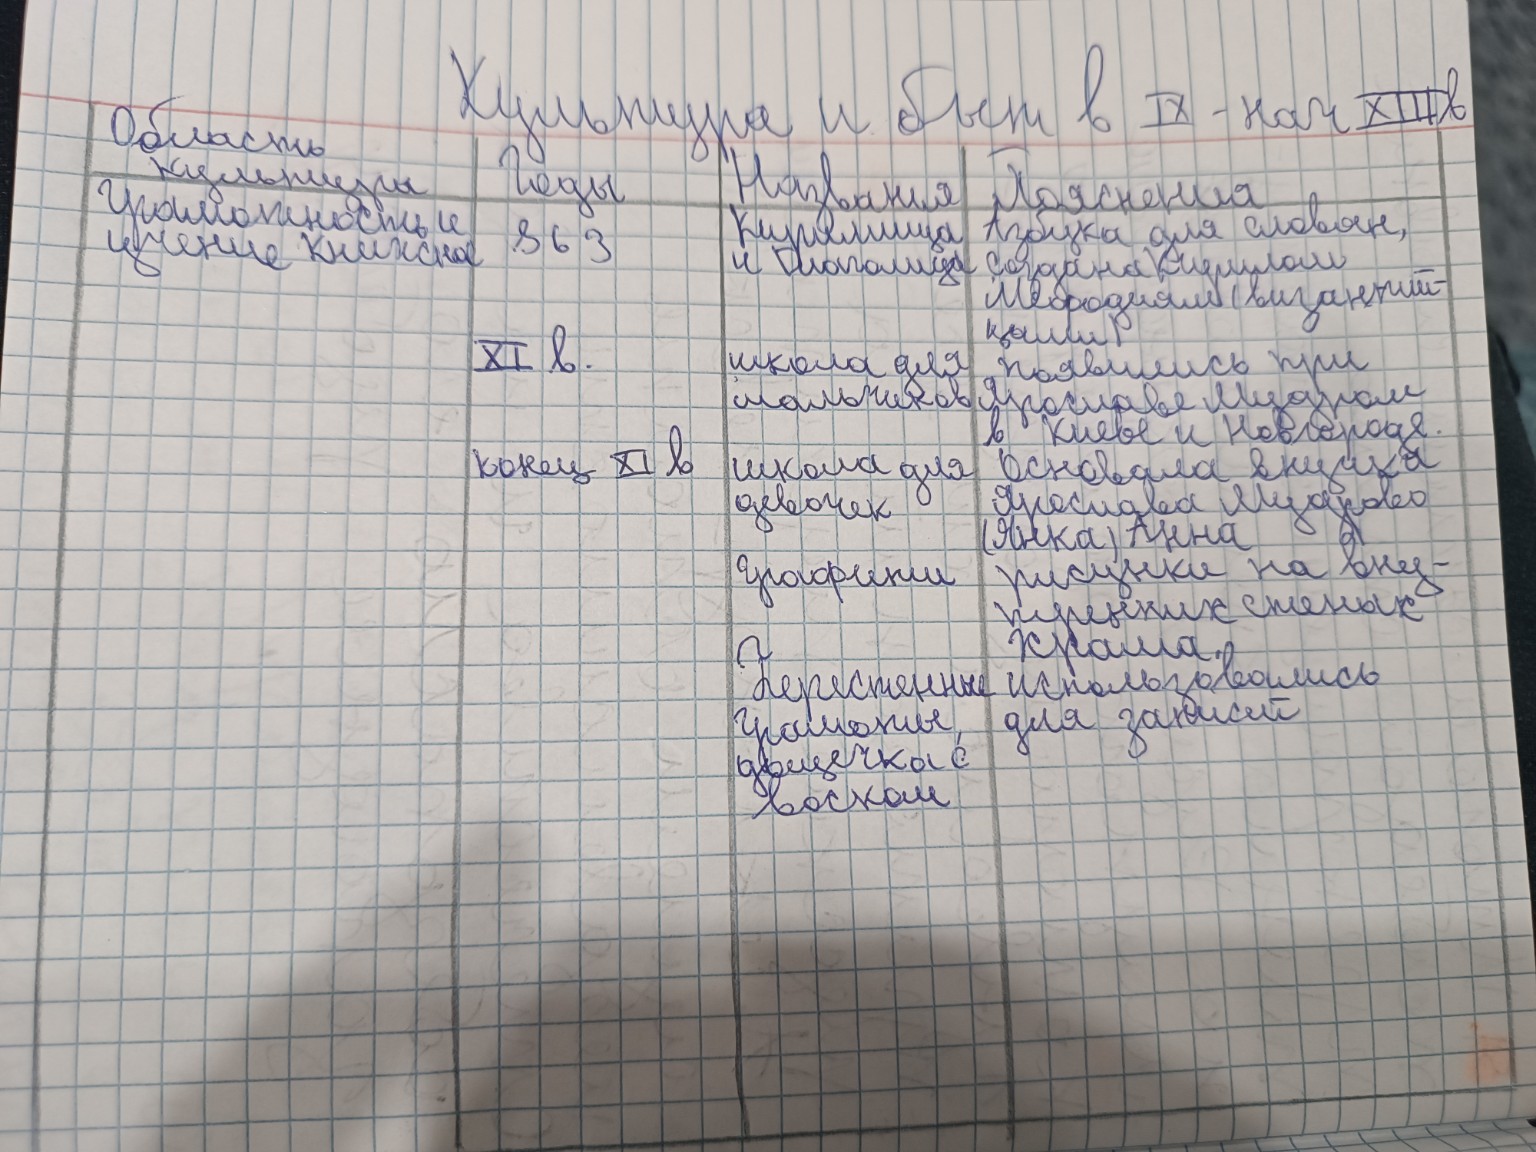 Культура и быт в IX - нач XIII в
Область культуры
Годы
Названия
Пояснения
Грамотность и учение книжное
863
Кириллица и Глаголица
Азбука для славян,
создана Кирилом
Мефодиям (византий-
цами)
XI в.
школа для
мальчиков
появились при
Ярославе Мудром
в Киеве и Новгороде.
конец XI в
школа для
девочек
основала внучка
Ярослава Мудрово
(Янка) Анна
графити
рисунки на вну-
тренних стенах
храма.
Берестенные
грамоты,
дощечка с
воском
использовались
для записей